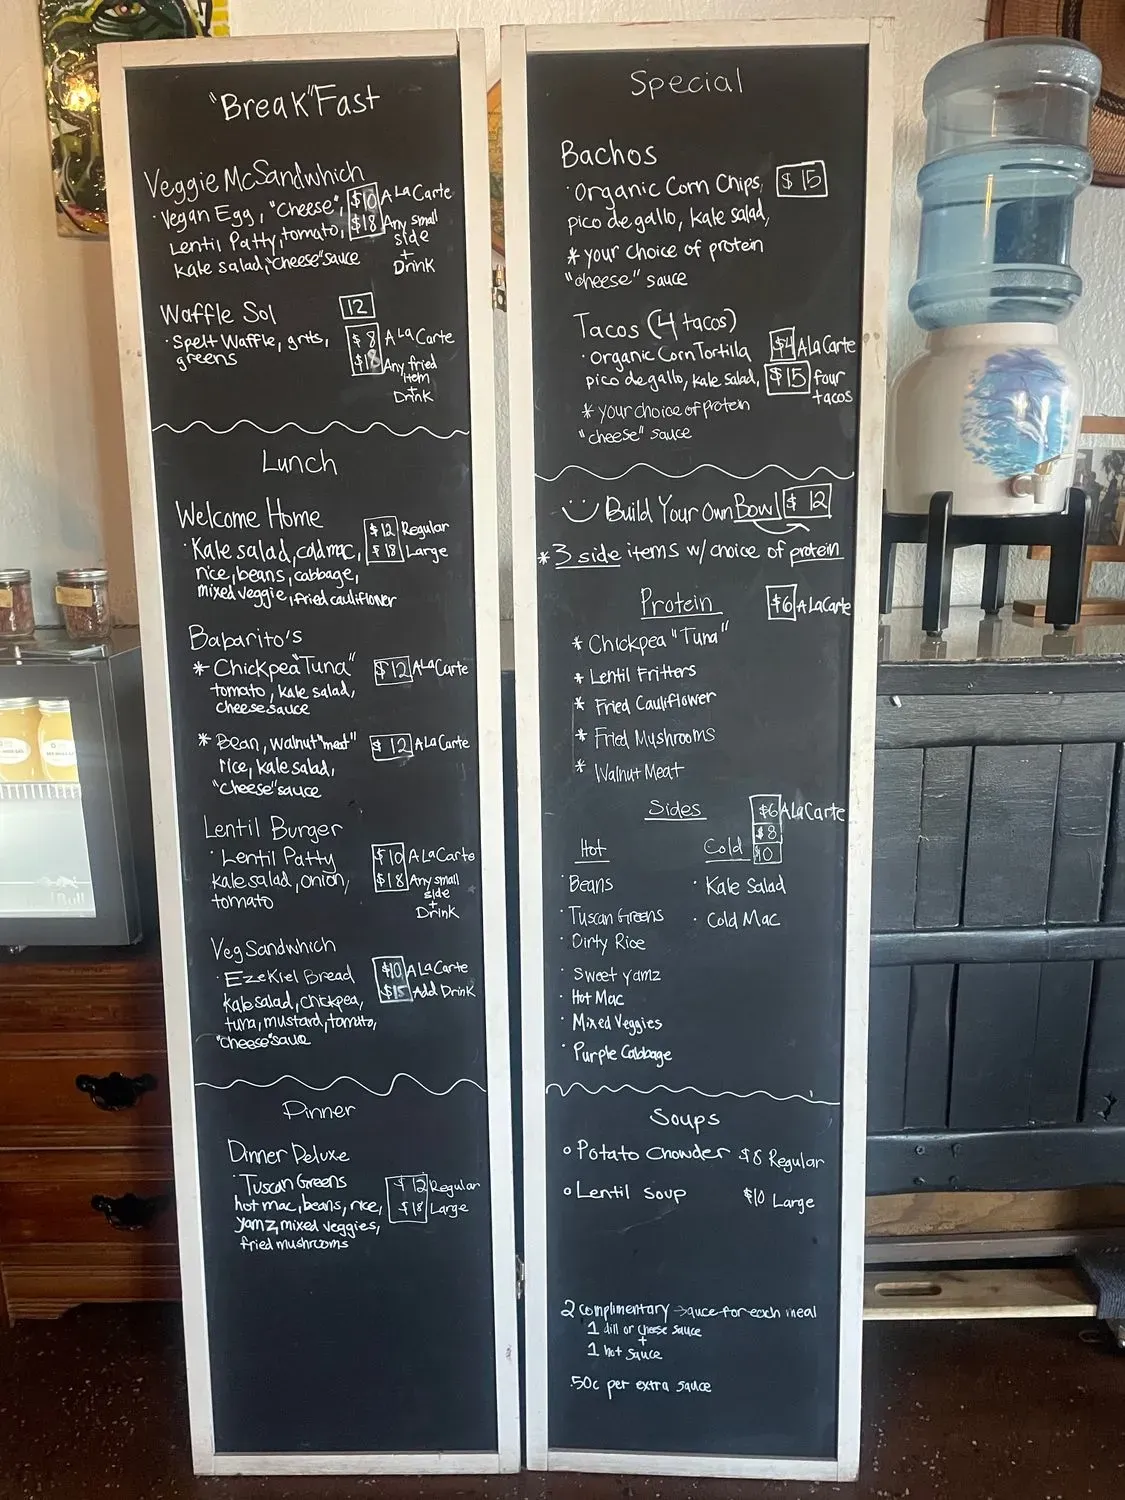 "Break"Fast
Veggie McSandwhich
· Vegan Egg, "Cheese", $10 A La Carte
Lentil Patty, tomato, $18 Any small side + Drink
Kale salad, "cheese" sauce
Waffle Sol 12
· Spelt Waffle, grits, $8 A La Carte
greens $18 Any fried item + Drink
Lunch
Welcome Home
· Kale salad, cold mac, $12 Regular
rice, beans, cabbage, $18 Large
mixed veggie, fried cauliflower
Babarito's
* Chickpea "Tuna" $12 A La Carte
tomato, kale salad,
cheese sauce
* Bean, walnut "meat" $12 A La Carte
rice, kale salad,
"cheese" sauce
Lentil Burger
· Lentil Patty $10 A La Carte
kale salad, onion, $18 Any small side + Drink
tomato
Veg Sandwhich
· Ezekiel Bread $10 A La Carte
kale salad, chickpea, $15 Add Drink
tuna, mustard, tomato,
"cheese" sauce
Dinner
Dinner Deluxe
· Tuscan Greens $12 Regular
hot mac, beans, rice, $18 Large
yamz, mixed veggies,
fried mushrooms
Special
Bachos
· Organic Corn Chips, $15
pico de gallo, kale salad,
* your choice of protein
"cheese" sauce
Tacos (4 tacos)
· Organic Corn Tortilla $4 A La Carte
pico de gallo, kale salad, $15 four tacos
* your choice of protein
"cheese" sauce
Build Your Own Bowl $12
* 3 side items w/ choice of protein
Protein $6 A La Carte
* Chickpea "Tuna"
* Lentil Fritters
* Fried Cauliflower
* Fried Mushrooms
* Walnut Meat
Sides $6 A La Carte
$8
Hot Cold $10
· Beans · Kale Salad
· Tuscan Greens · Cold Mac
· Dirty Rice
· Sweet yamz
· Hot Mac
· Mixed Veggies
· Purple Cabbage
Soups
o Potato Chowder $8 Regular
o Lentil Soup $10 Large
2 complimentary sauce for each meal
1 dill or cheese sauce
+
1 hot sauce
.50c per extra sauce